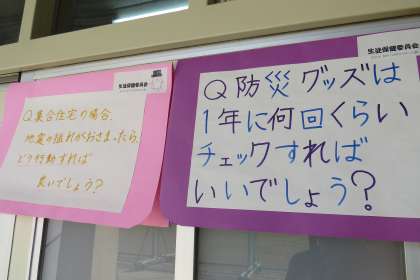 生徒保健委員会
Q.集合住宅の場合、
地震の揺れがおさまったら、
どう行動すれば
良いでしょう？
生徒保健委員会
Q 防災グッズは
1年に何回くらい
チェックすれば
いいでしょう？